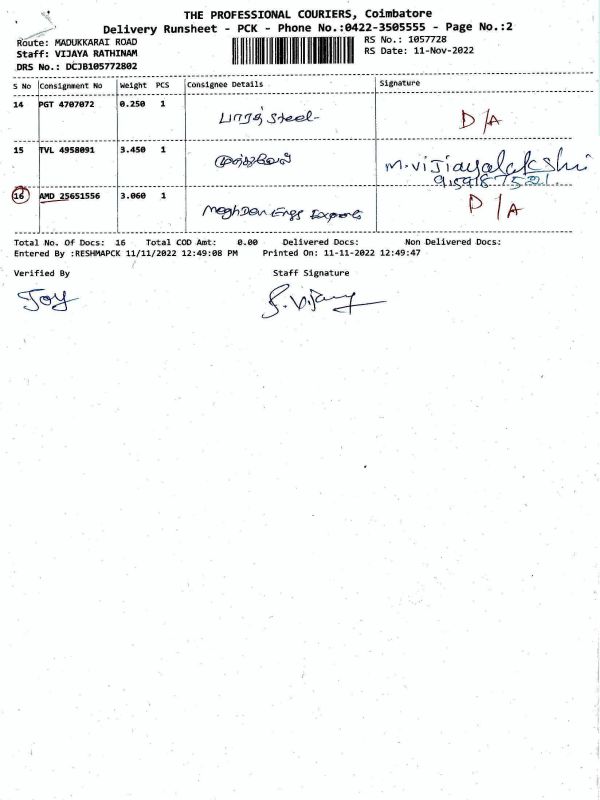 THE PROFESSIONAL COURIERS, Coimbatore
Delivery Runsheet - PCK - Phone No.:0422-3505555 - Page No.:2
Route: MADUKKARAI ROAD
Staff: VIJAYA RATHINAM
DRS No.: DCJB105772802
RS No.: 1057728
RS Date: 11-Nov-2022
S No Consignment No Weight PCS Consignee Details Signature
14 PGT 4707072 0.250 1 பாரத் Steel D/A
15 TVL 4958091 3.450 1 M.Vijiayalakshi
16 AMD 25651556 3.060 1 Meghdev Engg Exports D/A
Total No. Of Docs: 16 Total COD Amt: 0.00 Delivered Docs: Non Delivered Docs:
Entered By :RESHMAPCK 11/11/2022 12:49:08 PM Printed On: 11-11-2022 12:49:47
Verified By Staff Signature
Joy